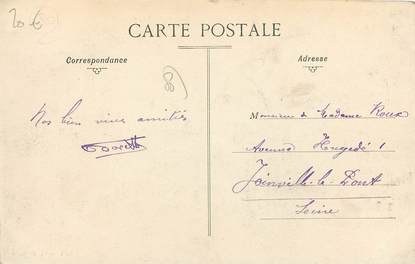 20 €
CARTE POSTALE
Correspondance
Adresse
89
Nos bien vives amitiés
Monsieur & Madame Roux
Avenue
Joinville-le-Pont
Seine